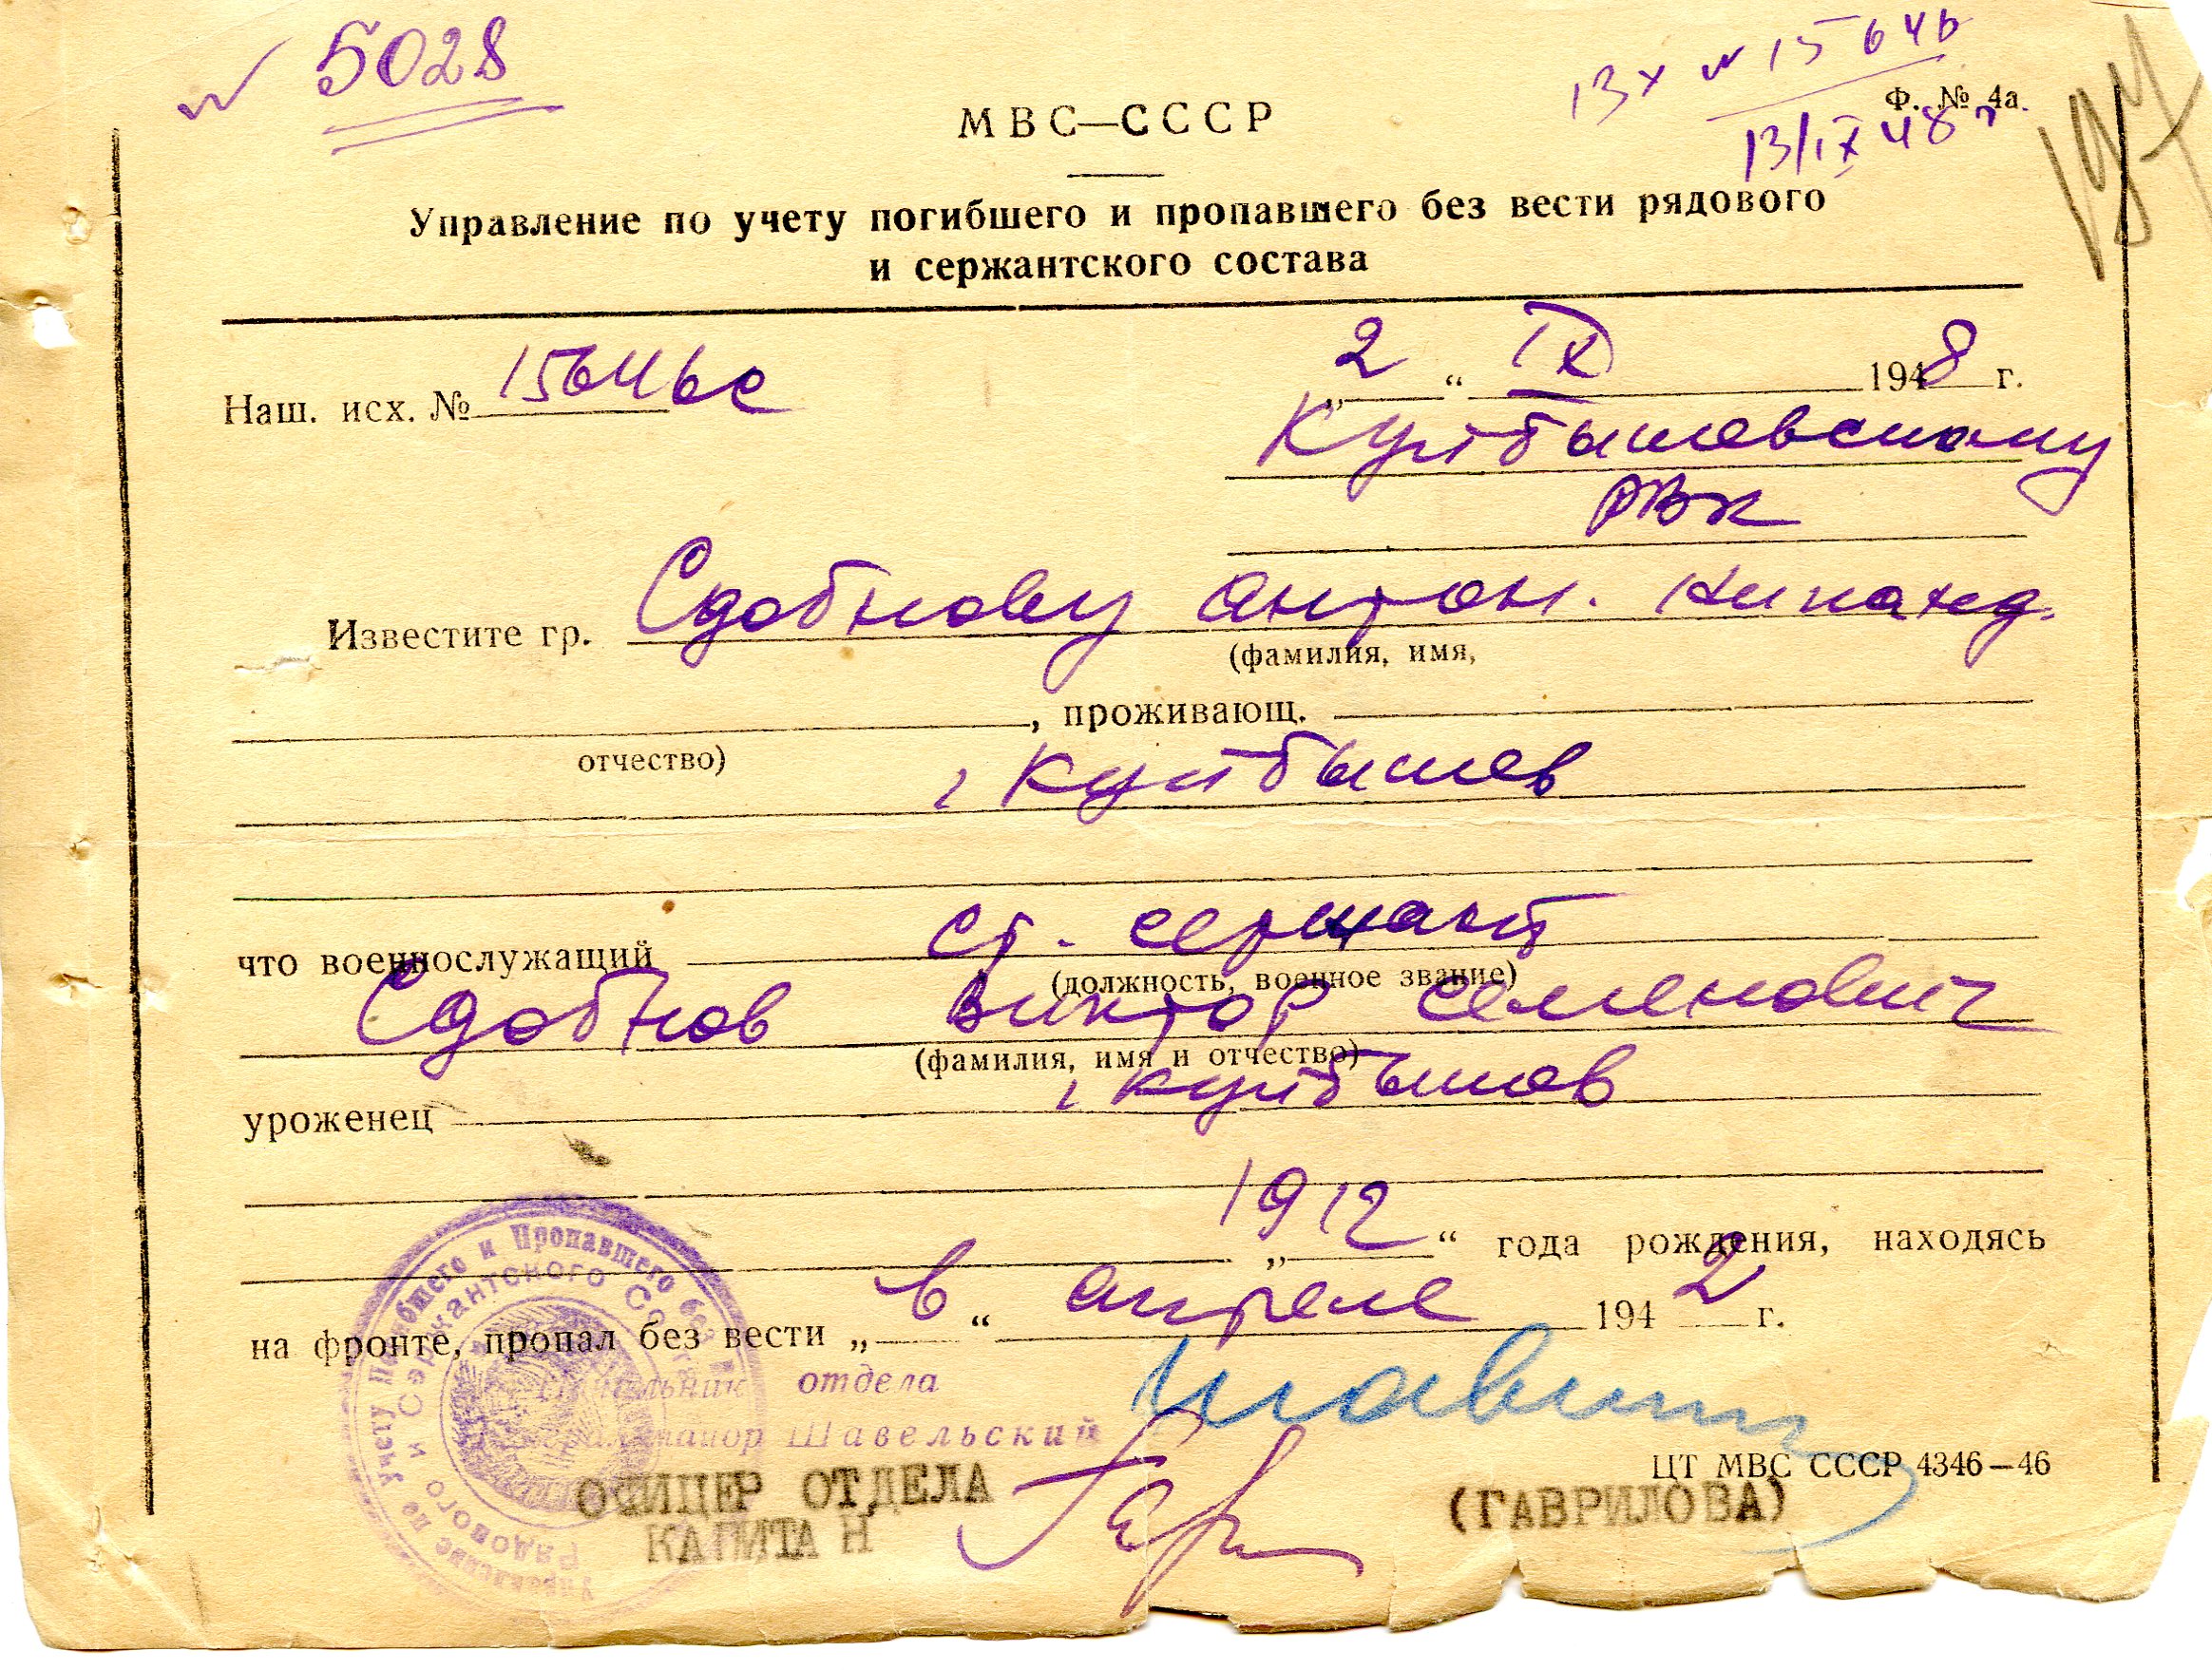 N 5028
13х N 15646
Ф. № 4а.
13/IX 48 г
197
МВС—СССР
Управление по учету погибшего и пропавшего без вести рядового
и сержантского состава
Наш. исх. № 15646с
„2“ IX 1948 г.
Куйбышевскому
РВК
Известите гр. Сдобнову Антон. Никанд.
(фамилия, имя,
, проживающ.
отчество)
г Куйбышев
что военнослужащий ст. сержант
(должность, военное звание)
Сдобнов Виктор Семенович
(фамилия, имя и отчество)
уроженец г Куйбышев
„1912“ года рождения, находясь
на фронте, пропал без вести „в“ апреле 1942 г.
Начальник отдела
майор Шавельский
ЦТ МВС СССР 4346—46
ОФИЦЕР ОТДЕЛА
(ГАВРИЛОВА)
КАПИТАН
Управление по учету Погибшего и Пропавшего без
Рядового и Сержантского Состава